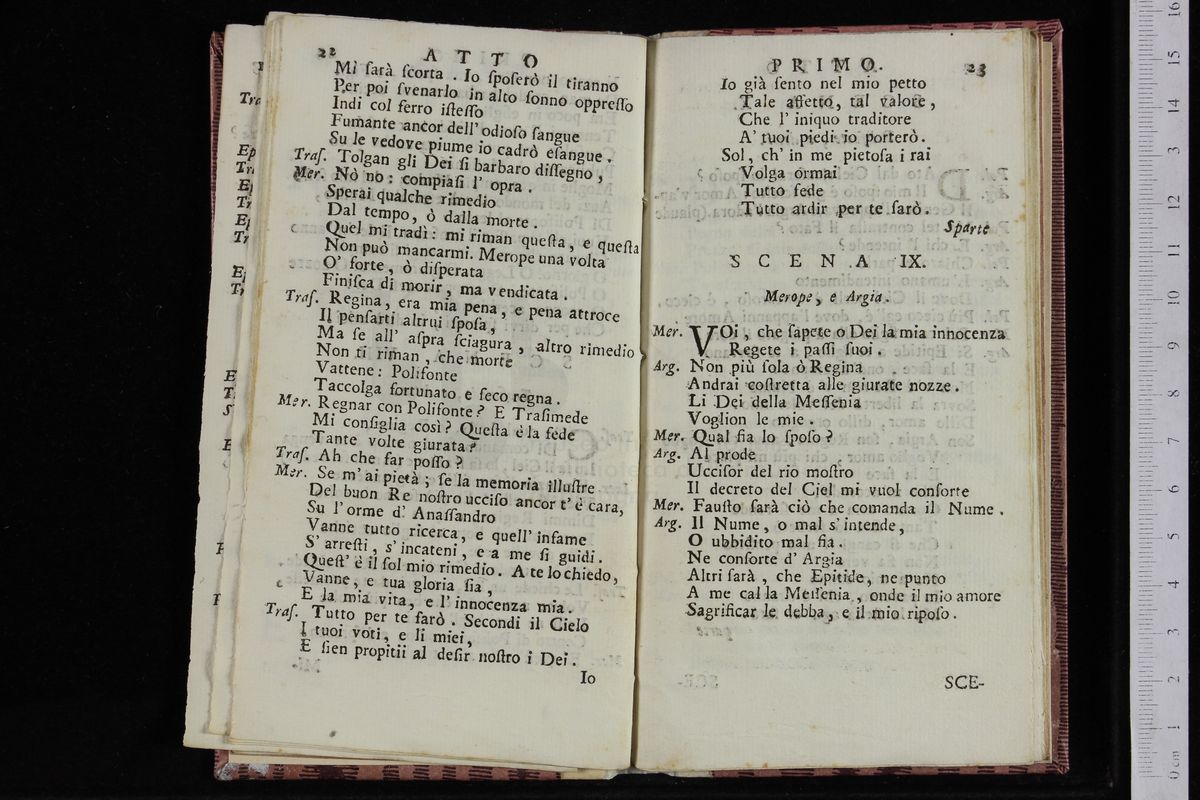 22
ATTO
Mi sarà scorta . Io sposerò il tiranno
Per poi svenarlo in alto sonno oppresso
Indi col ferro istesso
Fumante ancor dell' odioso sangue
Su le vedove piume io cadrò esangue .
Tras. Tolgan gli Dei sì barbaro dissegno ,
Mer. Nò nò : compiasi l' opra .
Sperai qualche rimedio
Dal tempo , ò dalla morte .
Quel mi tradì : mi riman questa , e questa
Non può mancarmi. Merope una volta
O' forte , ò disperata
Finisca di morir , ma vendicata .
Tras. Regina , era mia pena , e pena attroce
Il pensarti altrui sposa ,
Ma se all' aspra sciagura , altro rimedio
Non ti riman , che morte
Vattene : Polifonte
Taccolga fortunato e seco regna .
Mer. Regnar con Polifonte ? E Trasimede
Mi consiglia così ? Questa è la fede
Tante volte giurata ?
Tras. Ah che far posso ?
Mer. Se m' ai pietà ; se la memoria illustre
Del buon Re nostro ucciso ancor t' è cara,
Su l' orme d' Anassandro
Vanne tutto ricerca, e quell' infame
S' arresti , s' incateni , e a me si guidi .
Quest' è il sol mio rimedio . A te lo chiedo,
Vanne , e tua gloria sia ,
E la mia vita, e l' innocenza mia .
Tras. Tutto per te farò . Secondi il Cielo
I tuoi voti , e li miei,
E sien propitii al desir nostro i Dei .
Io
PRIMO.
23
Io già sento nel mio petto
Tale affetto, tal valore ,
Che l' iniquo traditore
A' tuoi piedi io porterò.
Sol, ch' in me pietosa i rai
Volga ormai
Tutto fede
Tutto ardir per te sarò.
Sparte
SCENA IX.
Merope, e Argia.
Mer. VOi , che sapete o Dei la mia innocenza
Regete i passi suoi .
Arg. Non più sola ò Regina
Andrai costretta alle giurate nozze .
Li Dei della Messenia
Voglion le mie .
Mer. Qual fia lo sposo ?
Arg. Al prode
Uccisor del rio mostro
Il decreto del Ciel mi vuol consorte
Mer. Fausto sarà ciò che comanda il Nume .
Arg. Il Nume, o mal s' intende,
O ubbidito mal fia .
Ne consorte d' Argia
Altri sarà , che Epitide, ne punto
A me cal la Messenia , onde il mio amore
Sagrificar le debba , e il mio riposo .
SCE-